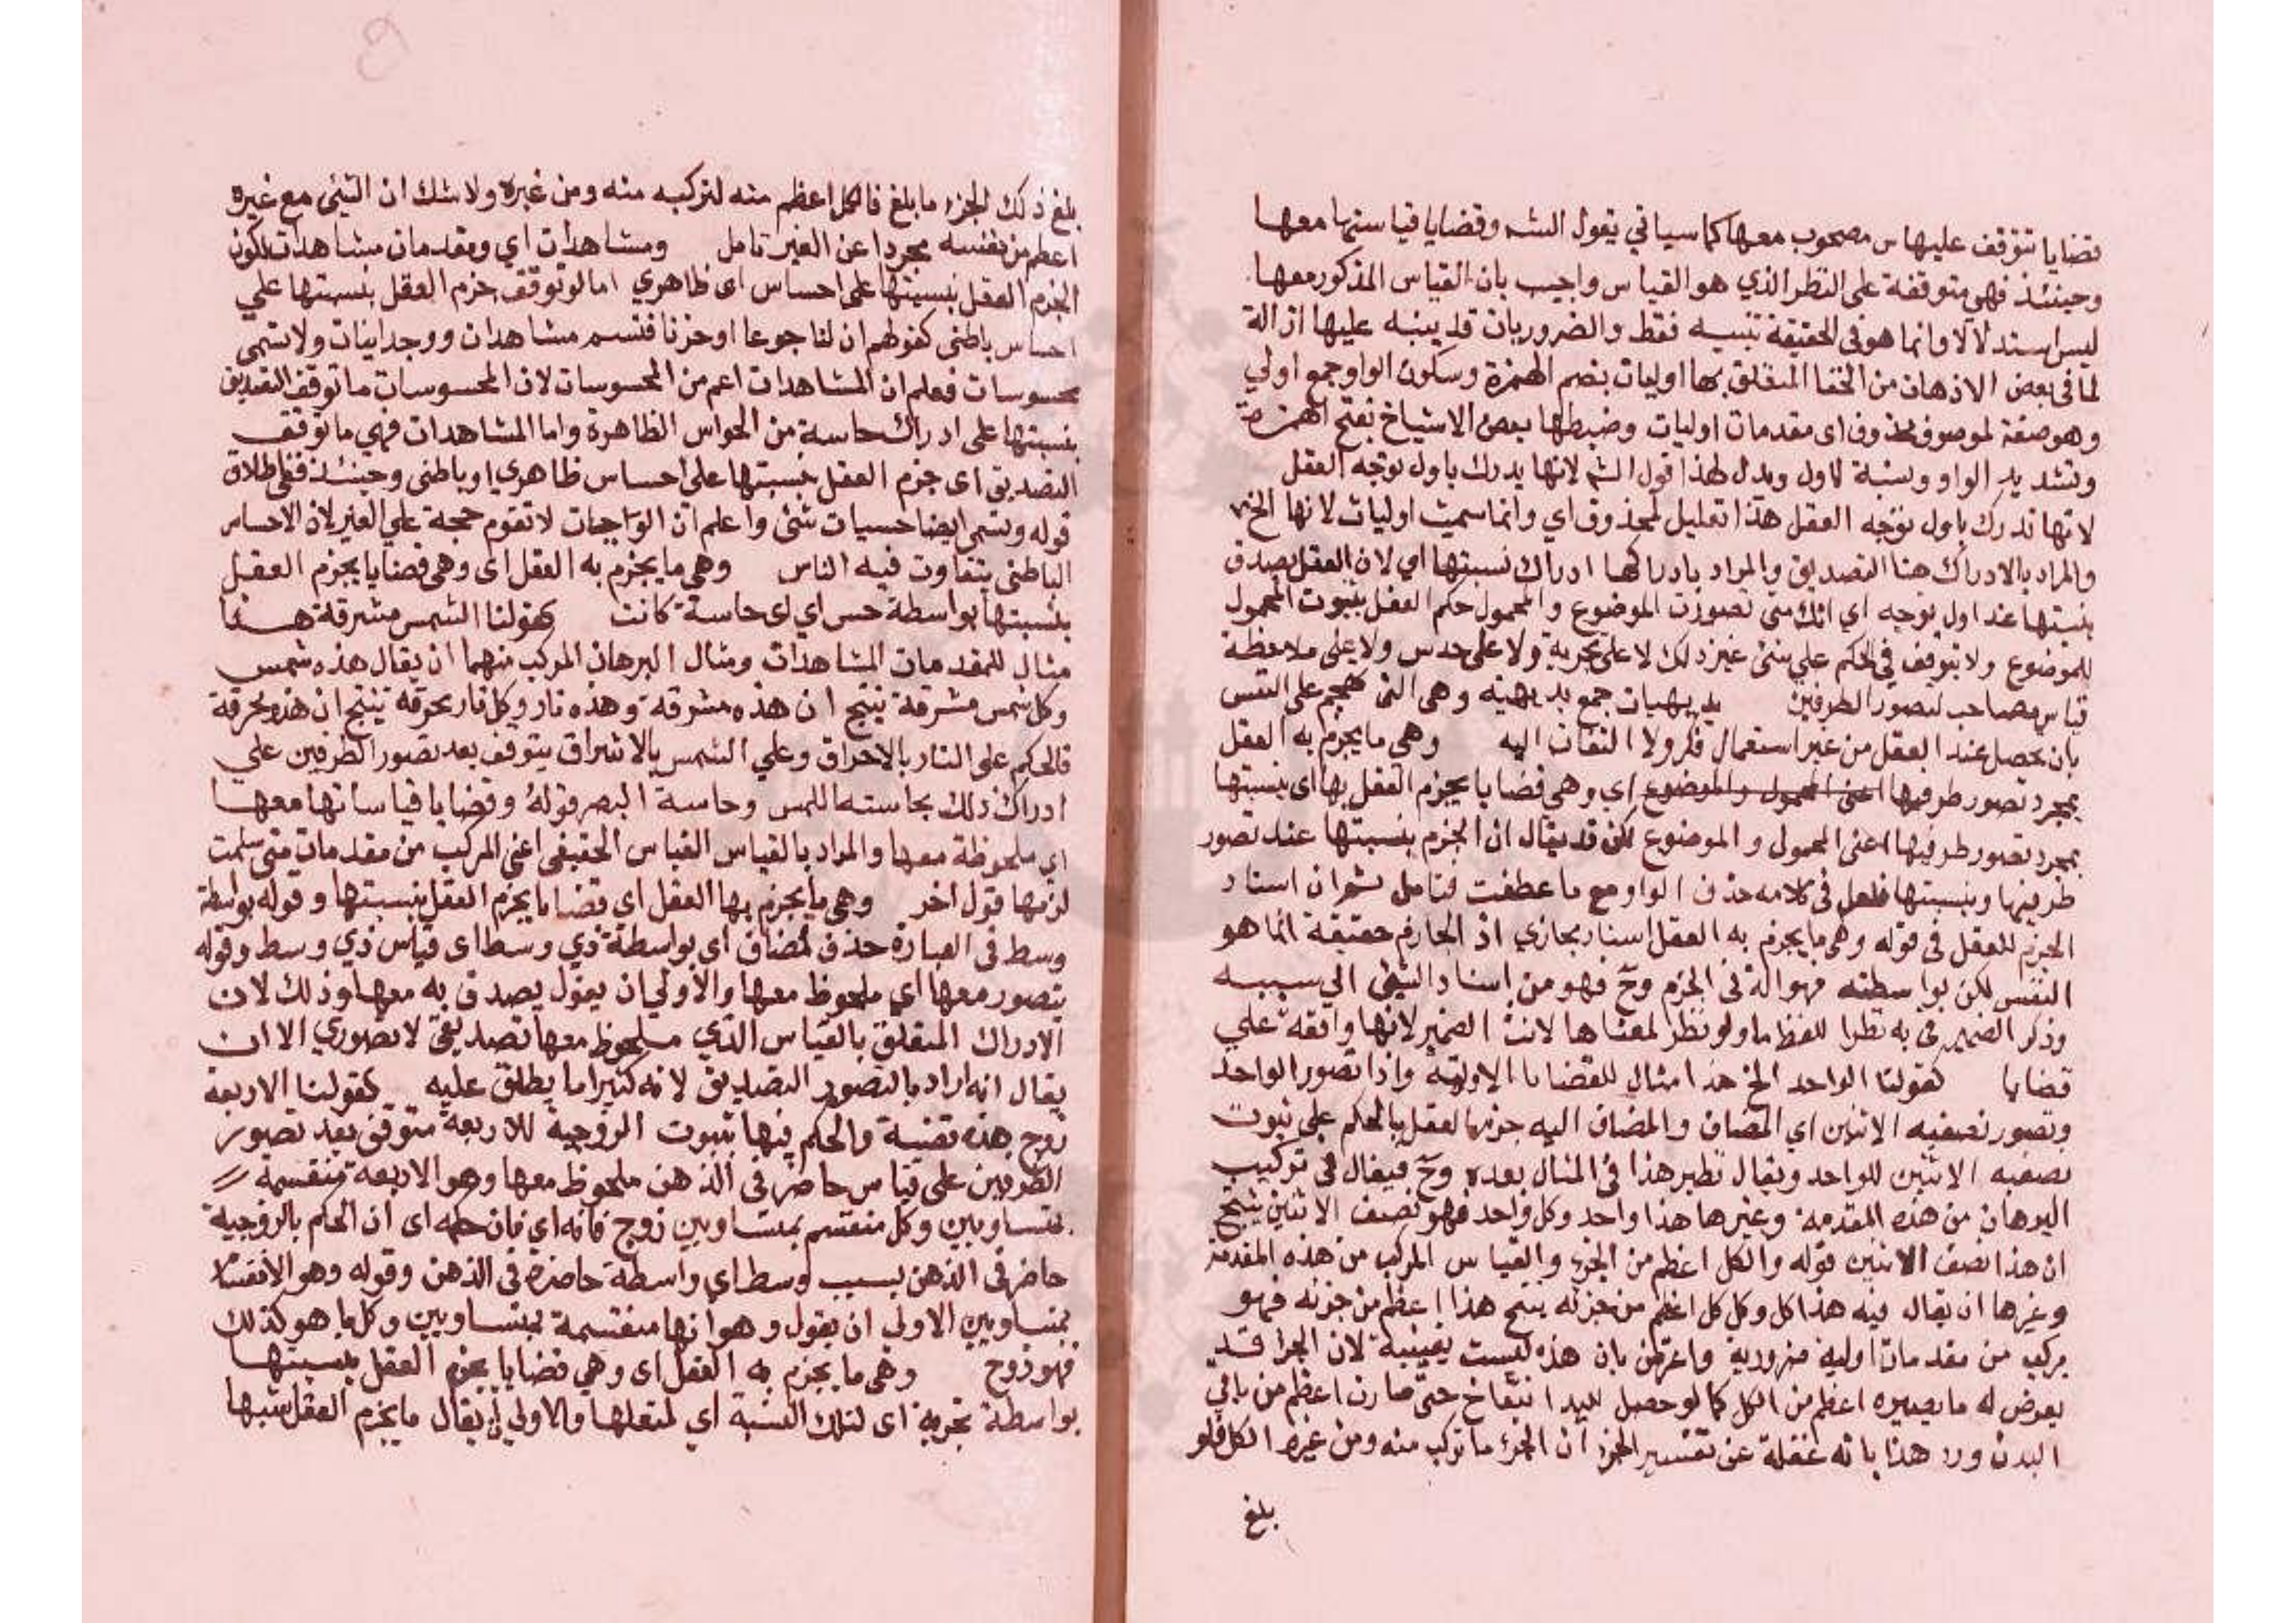 قضايا تتوقف عليها س مصحوب معها كما سياتي يقول الشه وقضايا قياستها معها
وحينئذ فهي متوقفة على النظر الذي هو القياس واجيب بان القياس المذكور معها
ليس استدلالا وانما هو في الحقيقة تنبيه فقط والضروريات قد ينبه عليها ازالة
لما في بعض الاذهان من الخفا المتعلق بها اوليات بضم الهمزة وسكون الواو جمع اولي
وهو صفة لموصوف محذوف اى مقدمات اوليات وضبطها بعض الاشياخ بفتح الهمزة
وتشديد الواو ونسبة لاول ويدل لهذا قول الشه لانها يدرك باول توجه العقل
لانها تدرك باول توجه العقل هذا تعليل لمحذوف اي وانما سميت اوليات لانها الخ
والمراد بالادراك هنا التصديق والمراد بادراكها ادراك نسبتها اي لان العقل يصدق
بنسبتها عند اول توجه اي انك متى تصورت الموضوع والمحمول حكم العقل بثبوت المحمول
للموضوع ولا يتوقف في الحكم علي شئ غير ذلك لا على تجربة ولا على حدس ولا على ملاحظة
قياس مصاحب لتصور الطرفين بديهيات جمع بديهية وهي التي تهجم على النفس
بان يحصل عند العقل من غير استعمال فكر ولا التفات اليه وهي ما يجزم به العقل
بمجرد تصور طرفيها اعنى المحمول والموضوع اي وهي قضايا يجزم العقل بها اى بنسبتها
بمجرد تصور طرفيها اعنى المحمول والموضوع لكن قد يقال ان الجزم بنسبتها عند تصور
طرفيها وبنسبتها فلعل في كلامه حذف الواو مع ما عطفت فتامل ثم ان اسناد
الجزم للعقل في قوله وهي ما يجزم به العقل اسناد مجازي اذ الجازم حقيقة انما هو
النفس لكن بواسطته فهو الة في الجزم وح فهو من اسناد الشئ الي سببه
وذكر الضمير في به نظرا للفظ ما ولو نظر لمعناها لانث الضمير لانها واقعة علي
قضايا كقولنا الواحد الخ هذا مثال للقضايا الاولية واذا تصور الواحد
وتصور نصفيه الاثنين اي المضاف والمضاف اليه جزم العقل بالحكم على ثبوت
نصفيه الاثنين للواحد ويقال نظير هذا في المثال بعده وح فيقال في تركيب
البرهان من هذه المقدمة وغيرها هذا واحد وكل واحد فهو نصف الاثنين ينتج
ان هذا نصف الاثنين قوله والكل اعظم من الجزء والقياس المركب من هذه المقدمة
وغيرها ان يقال فيه هذا كل وكل كل اعظم من جزئه ينتج هذا اعظم من جزئه فهو
مركب من مقدمات اولية ضرورية واعترض بان هذه ليست يقينية لان الجزا قد
يعرض له ما يصيره اعظم من الكل كما لو حصل لليد انتفاخ حتى صارت اعظم من باقي
البدن ورد هذا بانه غفلة عن تفسير الجزا ان الجزء ما تركب منه ومن غيره الكل فلو
بلغ
بلغ ذلك الجزء ما بلغ فالكل اعظم منه لتركبه منه ومن غيره ولا شك ان الشئ مع غيره
اعظم من نفسه مجردا عن الغير تامل ومشاهدات اي ومقدمات مشاهدات لكون
الجزم العقل بنسبتها على احساس اى ظاهري اما لو توقف جزم العقل بنسبتها علي
احساس باطني كقولهم ان لنا جوعا او حزنا فتسم مشاهدات ووجدانيات ولا تسمى
محسوسات فعلم ان المشاهدات اعم من المحسوسات لان المحسوسات ما توقف التصديق
بنسبتها على ادراك حاسة من الحواس الظاهرة واما المشاهدات فهي ما توقف
التصديق اى جزم العقل بنسبتها على احساس ظاهري او باطني وحينئذ ففي اطلاق
قوله وتسمى ايضا حسيات شئ واعلم ان الواجبات لا تقوم حجة علي الغير لان الاحساس
الباطني يتفاوت فيه الناس وهي ما يجزم به العقل اى وهي قضايا يجزم العقل
بنسبتها بواسطة حس اي اى حاسة كانت كقولنا الشمس مشرقة هذا
مثال للمقدمات المشاهدات ومثال البرهان المركب منهما ان يقال هذه شمس
وكل شمس مشرقة ينتج ان هذه مشرقة وهذه نار وكل نار محرقة ينتج ان هذه محرقة
فالحكم على النار بالاحراق وعلي الشمس بالاشراق يتوقف بعد تصور الطرفين علي
ادراك ذلك بحاسته اللمس وحاسة البصر قوله وقضايا قياساتها معها
اي ملحوظة معها والمراد بالقياس القياس الحقيقي اعني المركب من مقدمات متى سلمت
لزمها قول اخر وهي ما يجزم بها العقل اى قضايا يجزم العقل بنسبتها وقوله بواسطة
وسط في العبارة حذف لمضاف اي بواسطة ذي وسط اى قياس ذي وسط وقوله
يتصور معها اي ملحوظ معها والاولي ان يقول يصدق به معها وذلك لان
الادراك المتعلق بالقياس الذي ملحوظ معها تصديقي لا تصوري الا ان
يقال انه اراد بالتصور التصديق لانه كثيرا ما يطلق عليه كقولنا الاربعة
زوج هذه قضية والحكم فيها بثبوت الزوجية للاربعة متوقف بعد تصور
الطرفين على قياس حاضر في الذهن ملحوظ معها وهو الاربعة منقسمة
بمتساويين وكل منقسم بمتساويين زوج فانه اي فان حكمه اى ان الحكم بالزوجية
حاضر في الذهن بسبب وسط اي واسطة حاضرة في الذهن وقوله وهو الانقسام
بمتساويين الاولي ان يقول وهو انها منقسمة بمتساويين وكل ما هو كذلك
فهو زوج وهي ما يجزم به العقل اى وهي قضايا يجزم العقل بنسبتها
بواسطة تجربة اى لتلك النسبة اي لمتعلقها والاولي ان يقال ما يجزم العقل بنسبتها